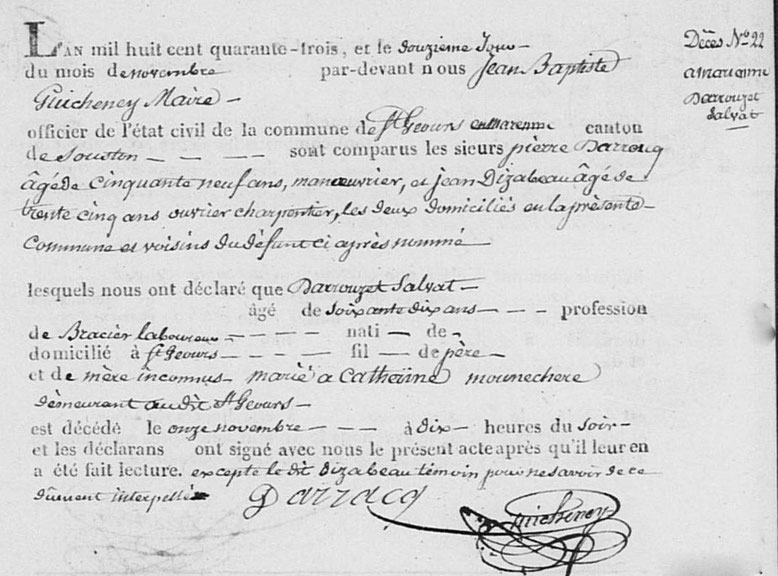 L'AN mil huit cent quarante-trois, et le douzieme Jour
du mois de novembre par-devant nous Jean Baptiste
Guicheney Maire -
officier de l'état civil de la commune de St Geours en marenne canton
de Souston - - - - sont comparus les sieurs pièrre Darrocq
âgé de cinquante neuf ans, manœuvrier, et jean Dizabeau âgé de
trente cinq ans ouvrier charpentier, les deux domiciliés en la présente
Commune et voisins du défunt ci après nommé
lesquels nous ont déclaré que Darrouzet Salvat -
âgé de soixante dix ans - - - profession
de Bracier laboureur - - - - nati - de -
domicilié à St Geours - - - - fil - de père -
et de mère inconnus - marié a Catherine mounechere
démeurant audit St Geours -
est décédé le onze novembre - - - à dix - heures du soir -
et les déclarans ont signé avec nous le présent acte après qu'il leur en
a été fait lecture. excepté le dit Dizabeau témoin pour ne savoir de ce
dument interpellé
Darracq
Guicheney
Décès No. 22
Darrouzet
Salvat